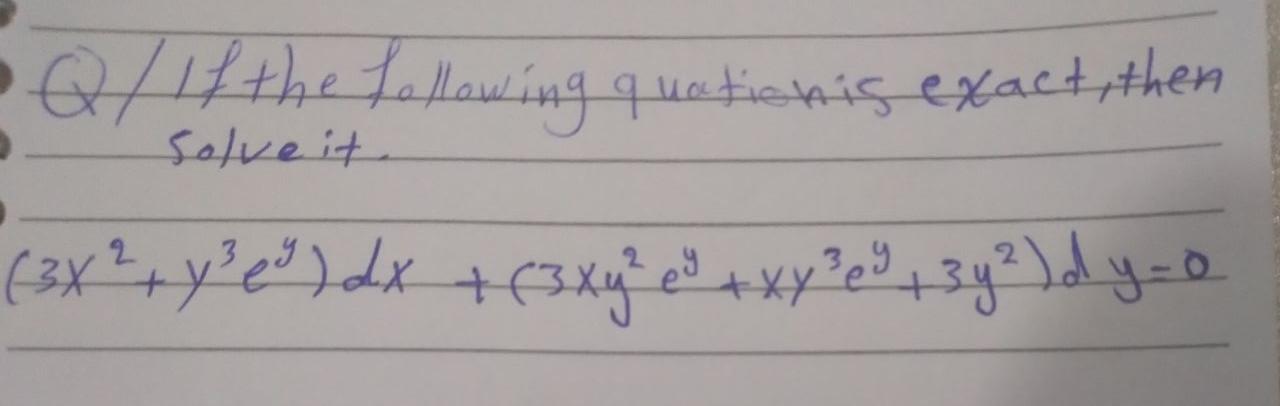 Q/ If the following quation is exact, then
solve it.
(3x² + y³e^y) dx + (3xy²e^y + xy³e^y + 3y²) dy = 0